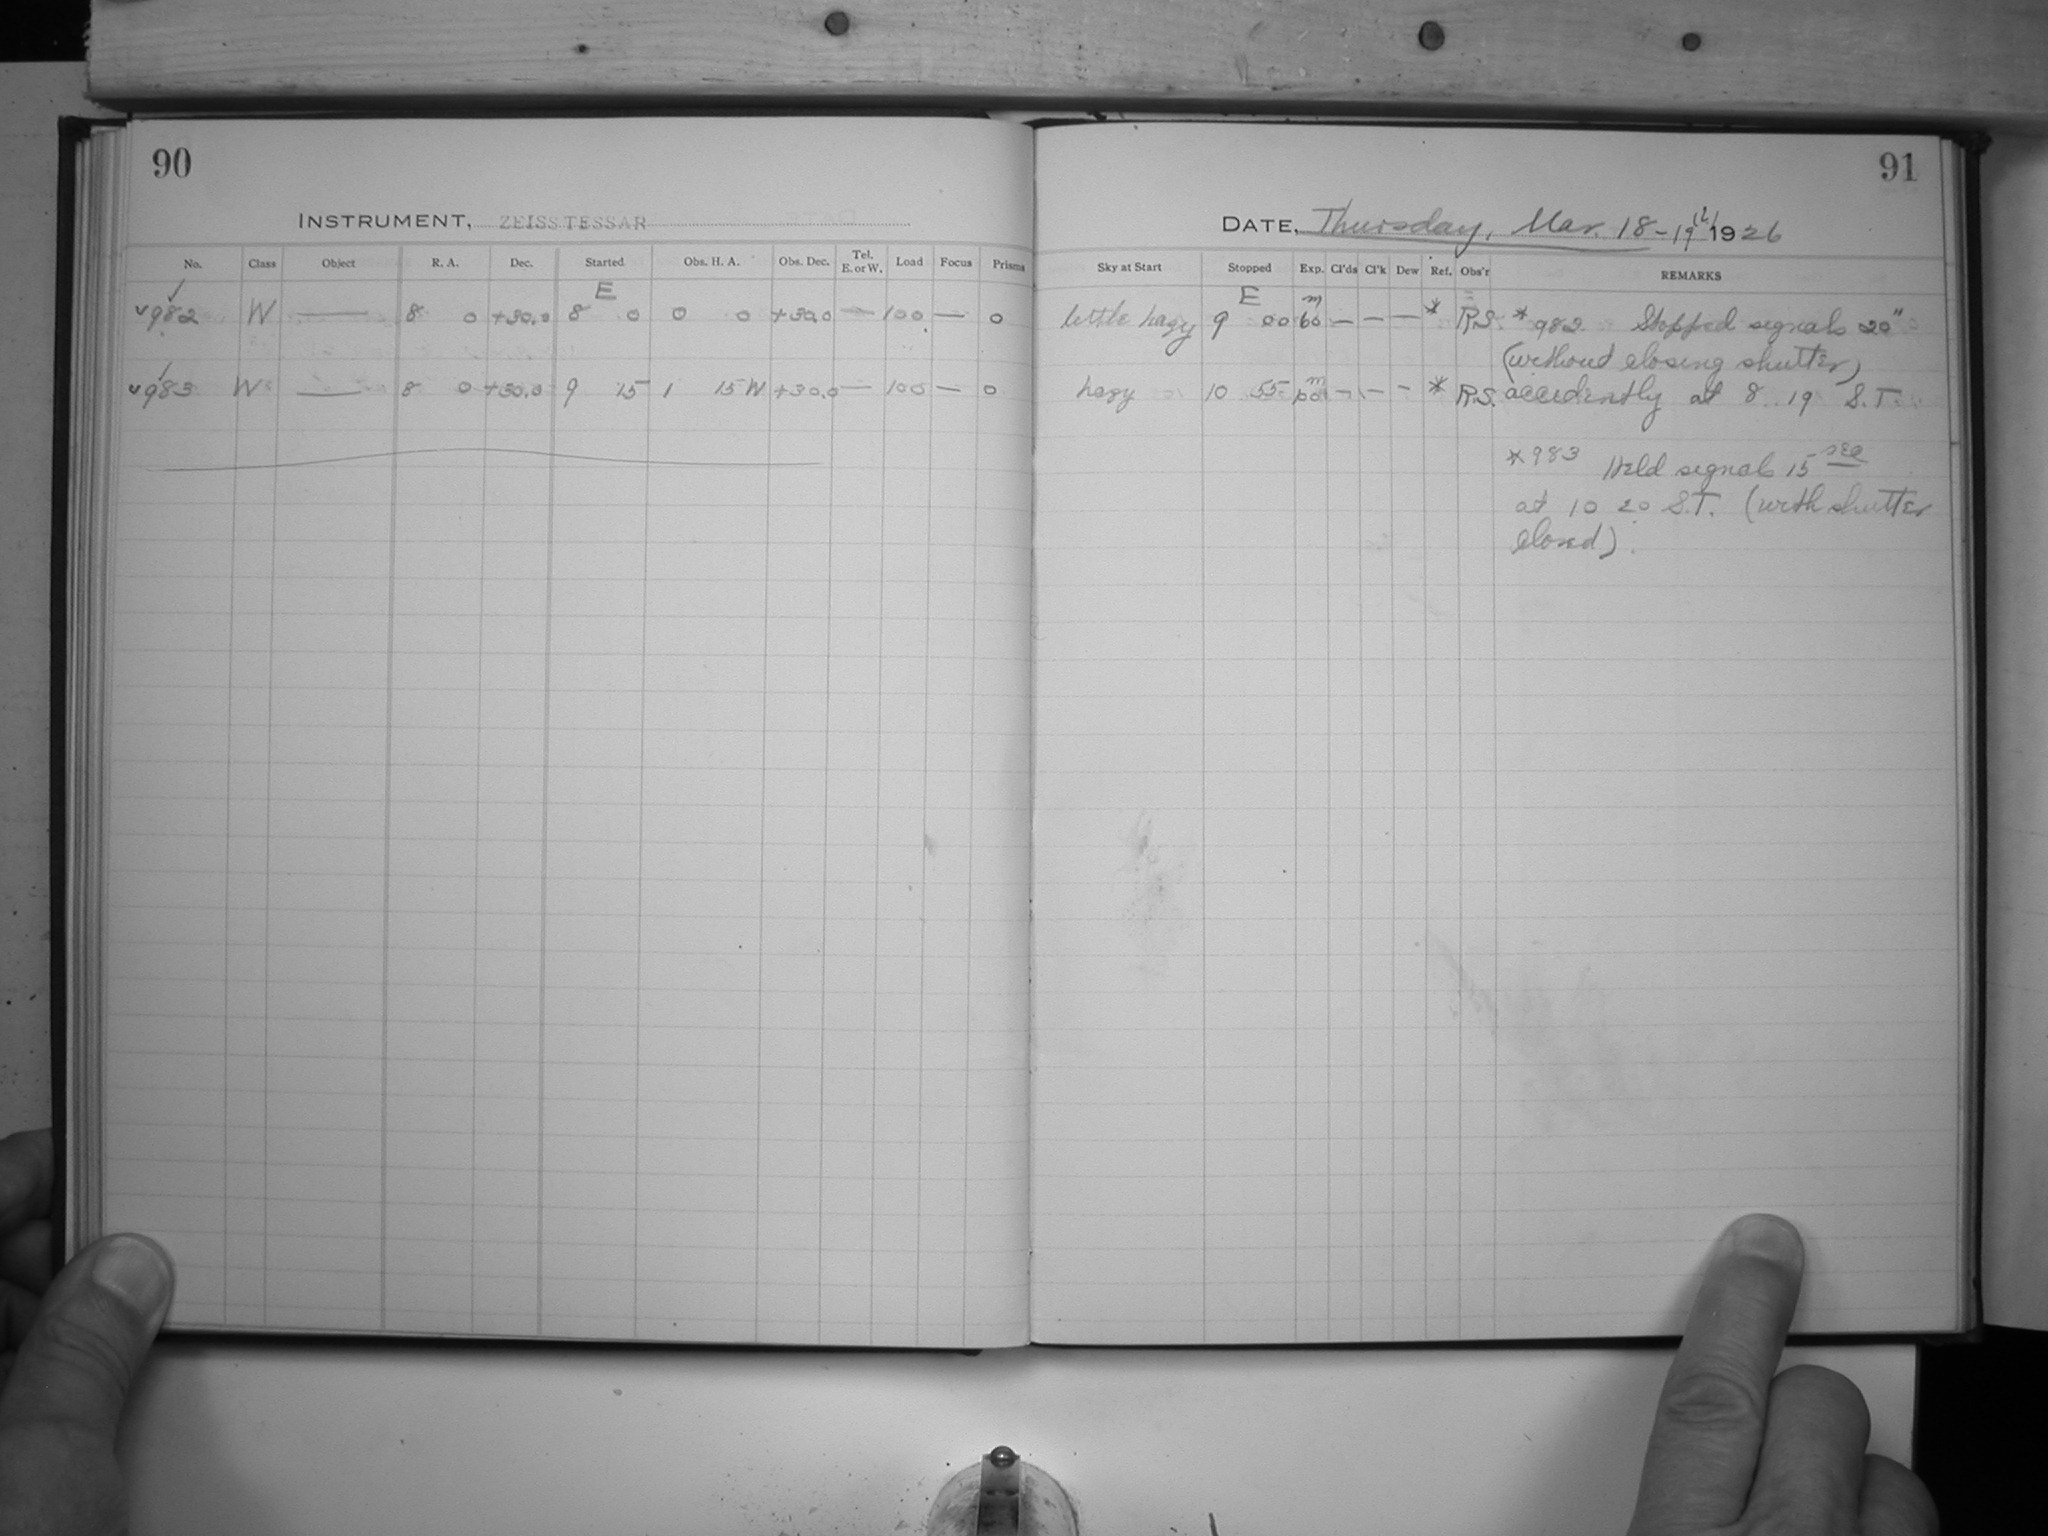 90
INSTRUMENT, ZEISS TESSAR
No. Class Object R. A. Dec. Started Obs. H. A. Obs. Dec. Tel. E. or W. Load Focus Prisms
E
✓982 W — 8 0 +30.0 8 0 0 0 +30.0 — 100 — 0
✓983 W — 8 0 +30.0 9 15 1 15 W +30.0 — 100 — 0
91
DATE, Thursday, Mar. 18-19 (2) 1926
Sky at Start Stopped Exp. Cl'ds Cl'k Dew Ref. Obs'r REMARKS
E m
little hazy 9 00 60 — — — * R.S. *982 Stopped signals 20"
(without closing shutter)
m
hazy 10 55 60 — — — * R.S. accidently at 8 19 S.T.
*983 Held signals 15 sec
at 10 20 S.T. (with shutter
closed).